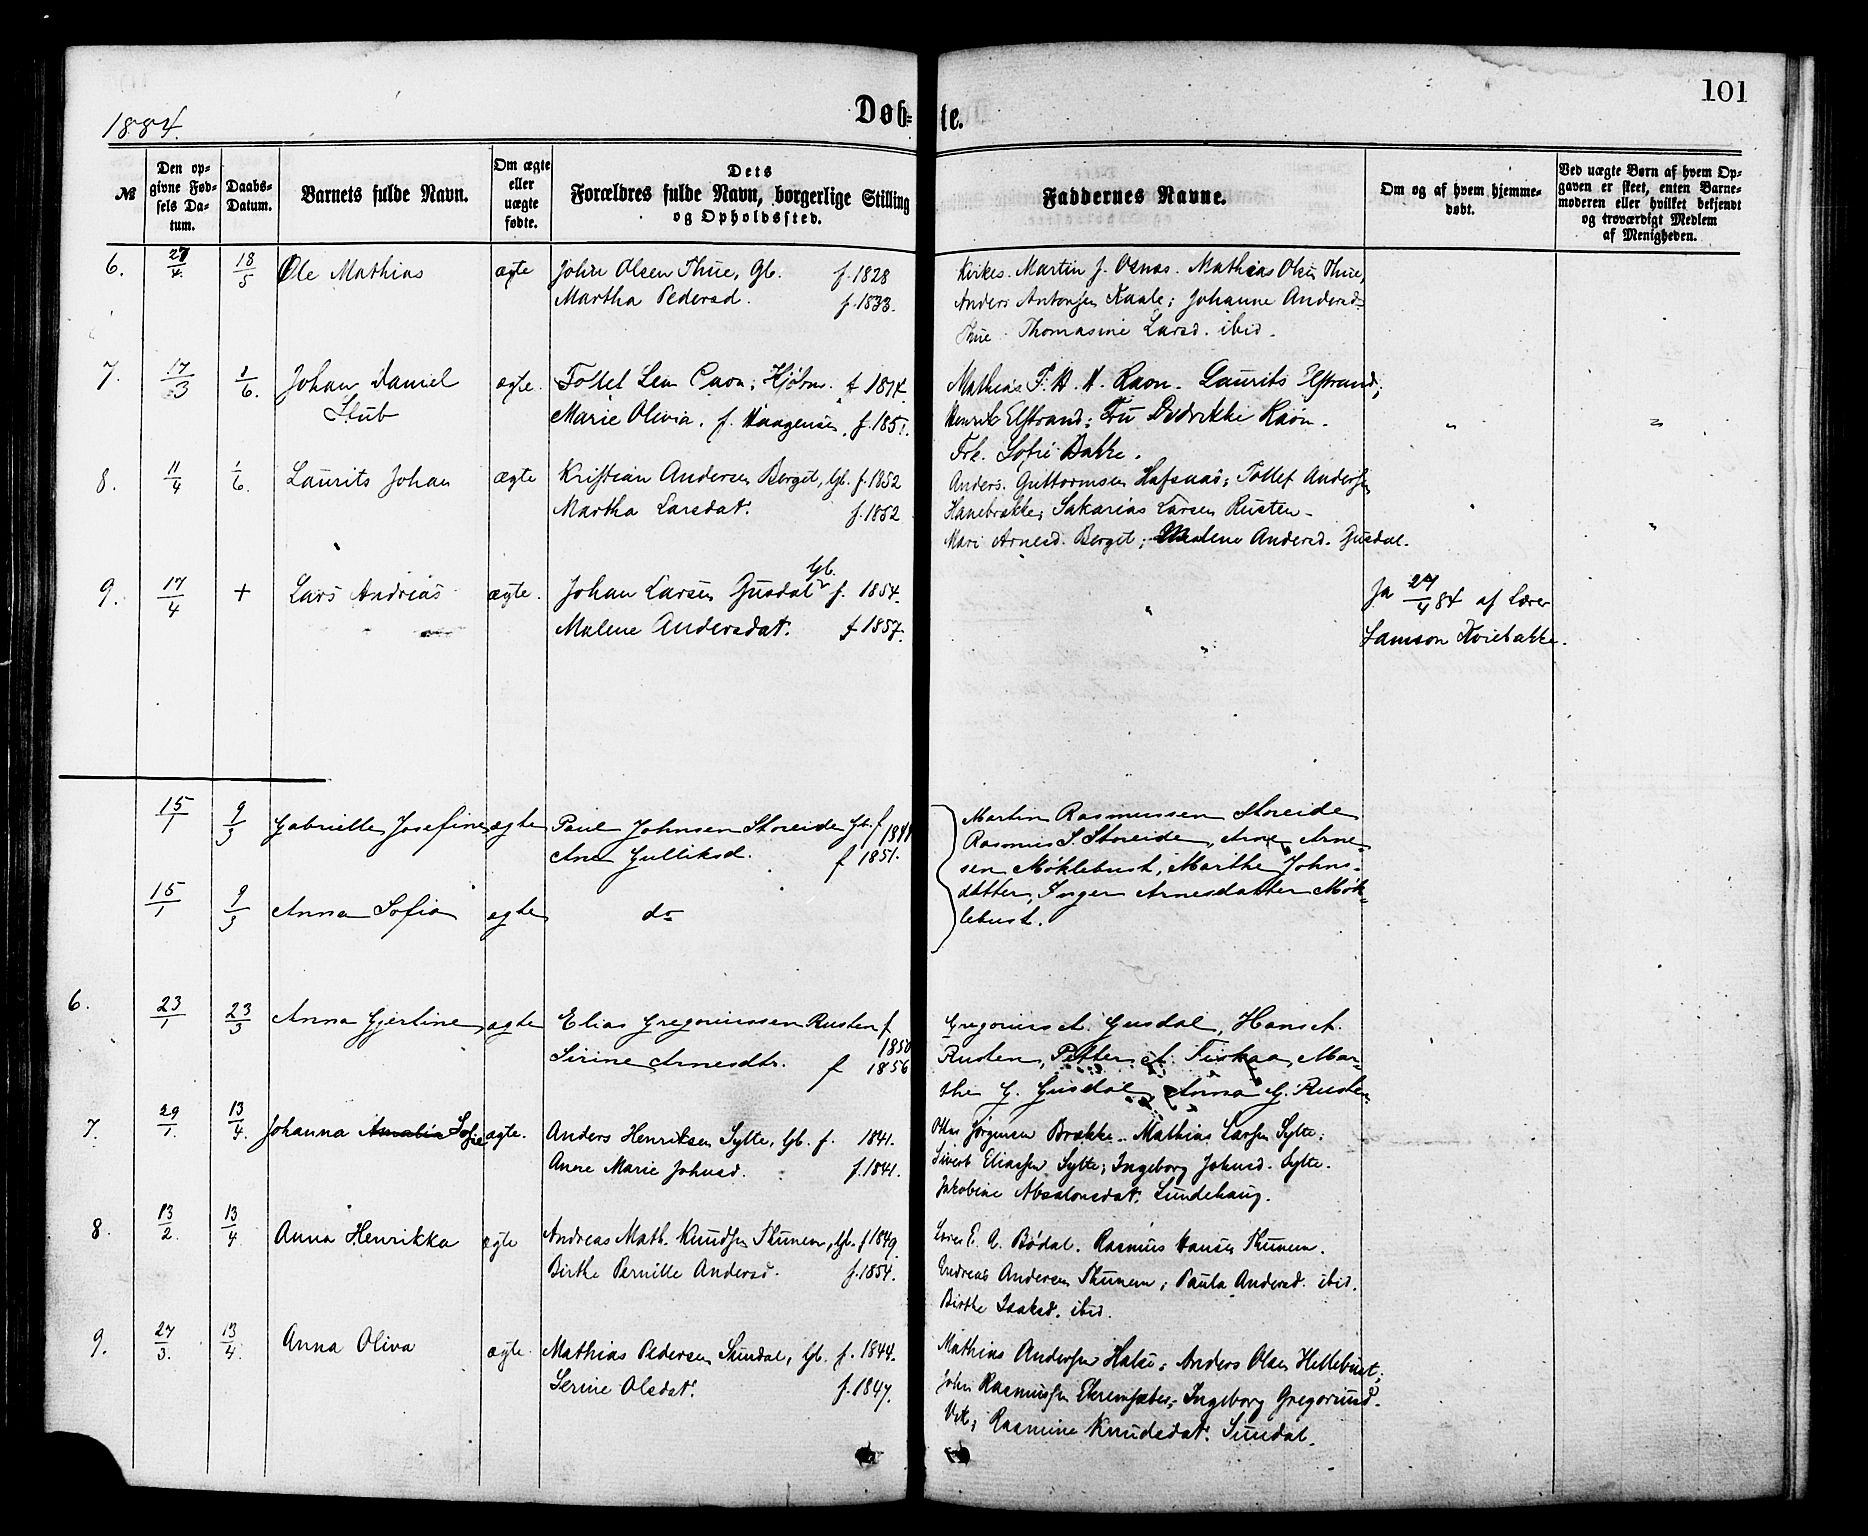 101
1884.
Døb- te.
№
Den op-
givne Fød-
sels Da-
tum.
Daabs-
Datum.
Barnets fulde Navn.
Om ægte
eller
uægte
fødte.
Dets
Forældres fulde Navn, borgerlige Stilling
og Opholdssted.
Faddernes Navne.
Om og af hvem hjemme-
døbt.
Ved uægte Børn af hvem Op-
gaven er skeet, enten Barne-
moderen eller hvilket bekjendt
og troværdigt Medlem
af Menigheden.
6. 27/4. 18/5 Ole Mathias ægte John Olsen Thue, Gb. f. 1828
Martha Pedersd. f. 1833.
Kirkes. Martin J. Osnes. Mathias Olsen Thue,
Anders Antonsen Kaale; Johanne Andersd.
Thue Thomasine Larsd. ibid.
7. 17/3 1/6. Johan Daniel ægte. Tollef Kjøbm. f 1874.
Stub Marie Olivia, f. Haagensen, f. 1851.
Mathias F. H. Raon. Laurits Elstrand;
Henrik Elstrand; Fru Dedrikke Raon.
Frk. Sofie Bakke.
8. 11/4 1/6. Laurits Johan ægte Kristian Andersen Berget, Gb. f. 1852
Martha Larsdat. f. 1852
Anders. Guttormsen Hafsnæs; Tollef Andersen
Hanebrække; Sakarias Larsen Rusten.
Mari Arnesd. Berget; Malene Andersd. Gusdal.
9. 17/4 + Lars Andreas ægte. Johan Larsen Gusdal Gb. f. 1854.
Malene Andersdat. f 1857.
Ja 27/4 84 af Lærer
Samson Kviebakke.
15/1 9/3 Gabrielle Josefine ægte Paul Johnsen Storeide Gb. f 1841
Ane Gulliksd. f 1851.
Martin Rasmussen Storeide
Rasmus S. Storeide, Arne Arne-
sen Møklebust, Marthe Johns-
datter, Inger Arnesdatter Møk-
lebust.
15/1 9/3 Anna Sofia ægte do
6. 23/1 23/3 Anna Gjertine ægte Elias Gregoriussen Rusten f 1850
Sirine Arnesdtr. f 1856
Gregorius A. Gusdal, Hans A.
Rusten, Petter A. Fiskaa, Mar-
the G. Gusdal, Anna G. Rusten
7. 29/1. 13/4. Johanna Amalia Sofie ægte. Anders Henriksen Sylte, Gb. f. 1841.
Anne Marie Johnsd. f. 1841.
Jørgensen Brække. Mathias Larsen Sylte;
Sivert Eliassen Sylte; Ingeborg Johnsd. Sylte.
Jakobine Absalonsdat. Lundehaug.
8. 13/2. 13/4. Anna Henrikka ægte Andreas Math. Knudsen Thunem, Gb. f 1849.
Birthe Pernille Andersd. f. 1854.
Lærer E. A. Bødal. Rasmus Hansen Thunem.
Andreas Andersen Thunem; Paula Andersd. ibid.
Birthe Isaksd. ibid.
9. 27/3. 13/4. Anna Oliva ægte. Mathias Pedersen Sundal, Gb. f. 1844.
Serine Olsdat. f. 1847.
Mathias Andersen Halse; Anders Olsen Hellebust;
John Rasmussen Ekremsæter; Ingeborg Gregoriusd.
Vik; Rasmine Knudsdat. Sundal.